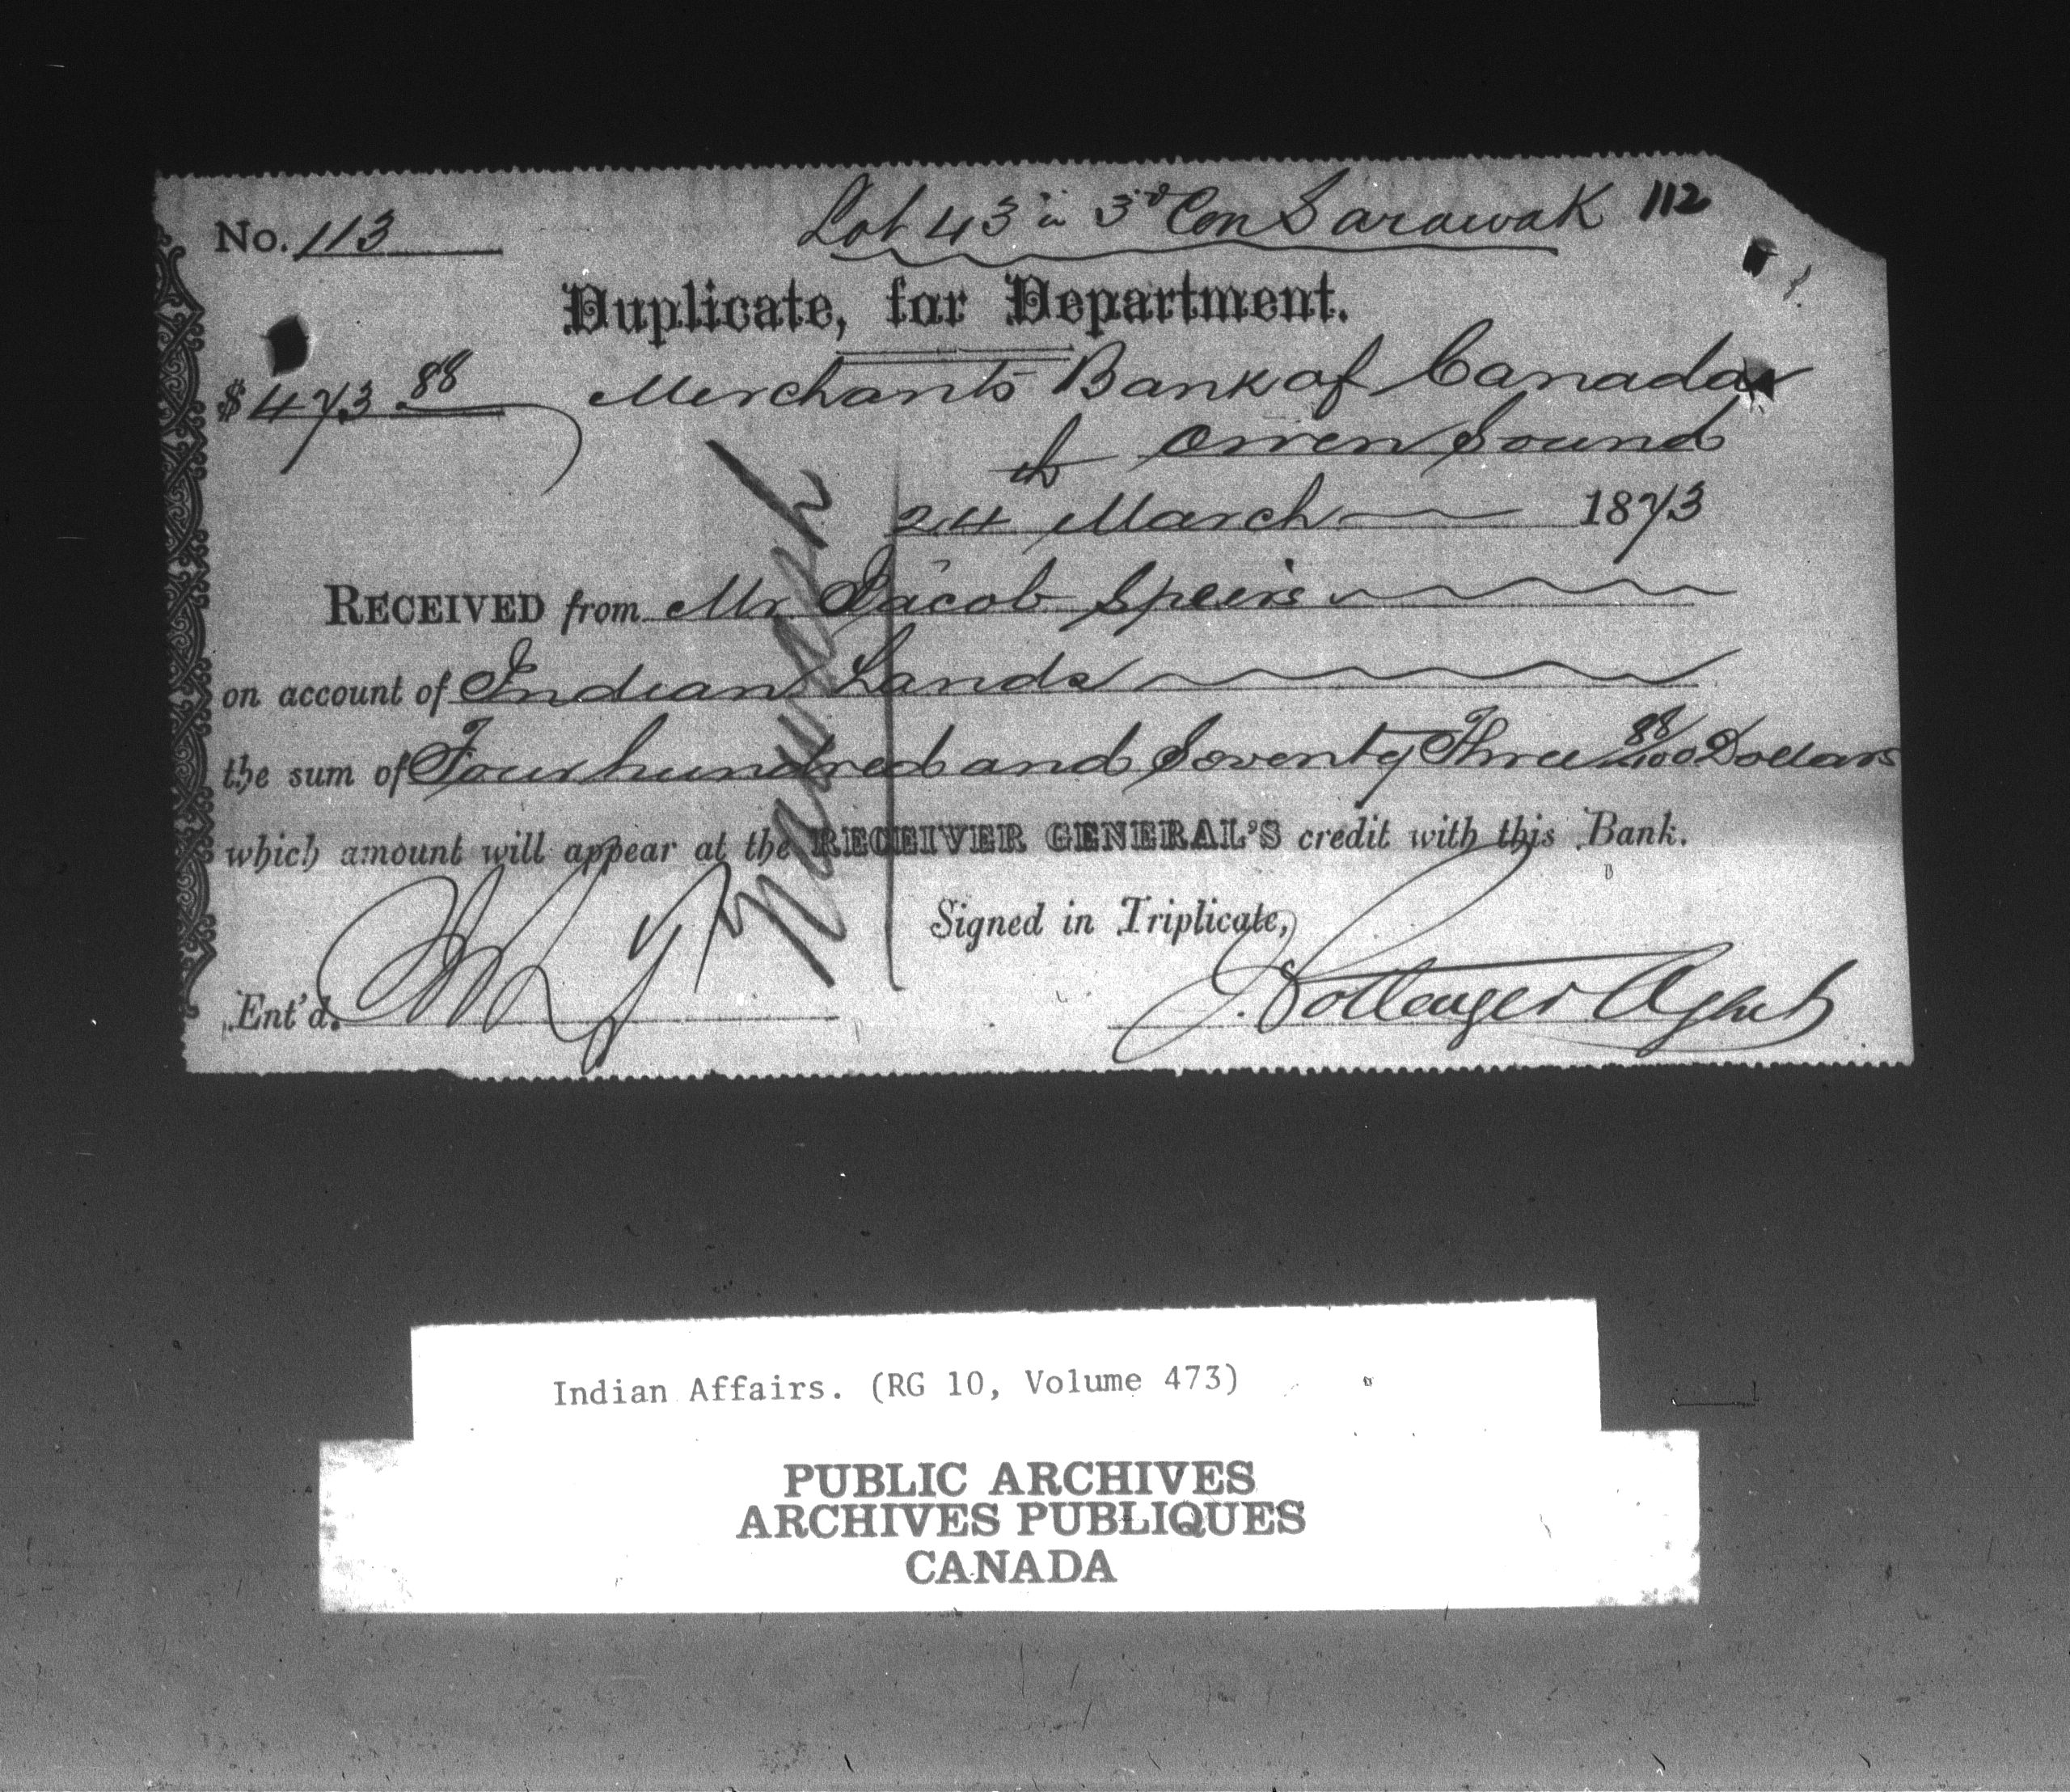 No. 113
Lot 43 in 3d Con Sarawak 112
Duplicate, for Department.
$473.88 Merchants Bank of Canada
Owen Sound
24th March 1873
RECEIVED from Mr Jacob Speirs
on account of Indian Lands
the sum of Four hundred and Seventy Three 88/100 Dollars
which amount will appear at the RECEIVER GENERAL'S credit with this Bank.
Signed in Triplicate,
Ent'd.
J. Pottenger Agent
Indian Affairs. (RG 10, Volume 473)
PUBLIC ARCHIVES
ARCHIVES PUBLIQUES
CANADA